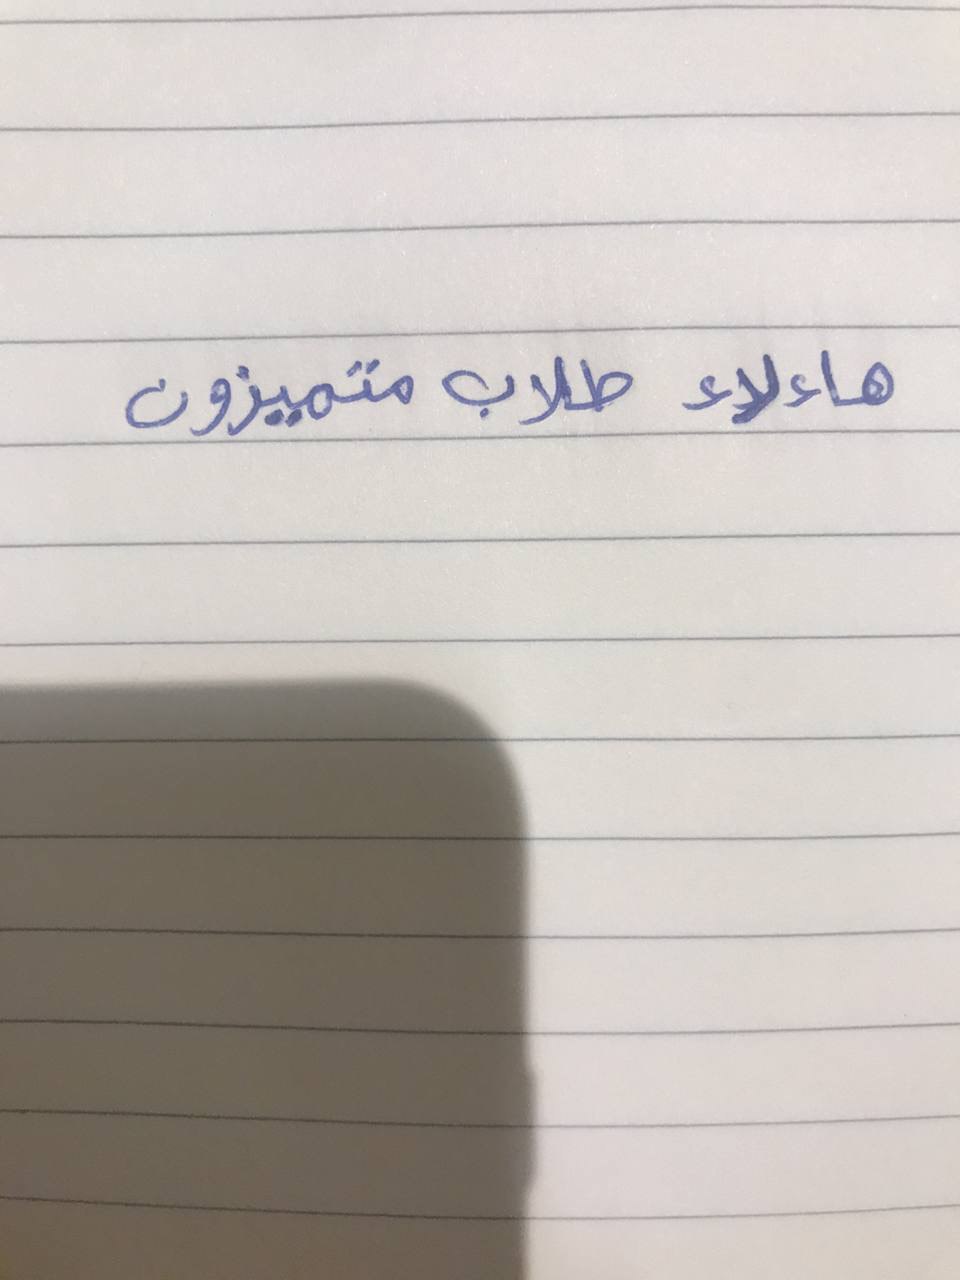 هاءلاء طلاب متميزون